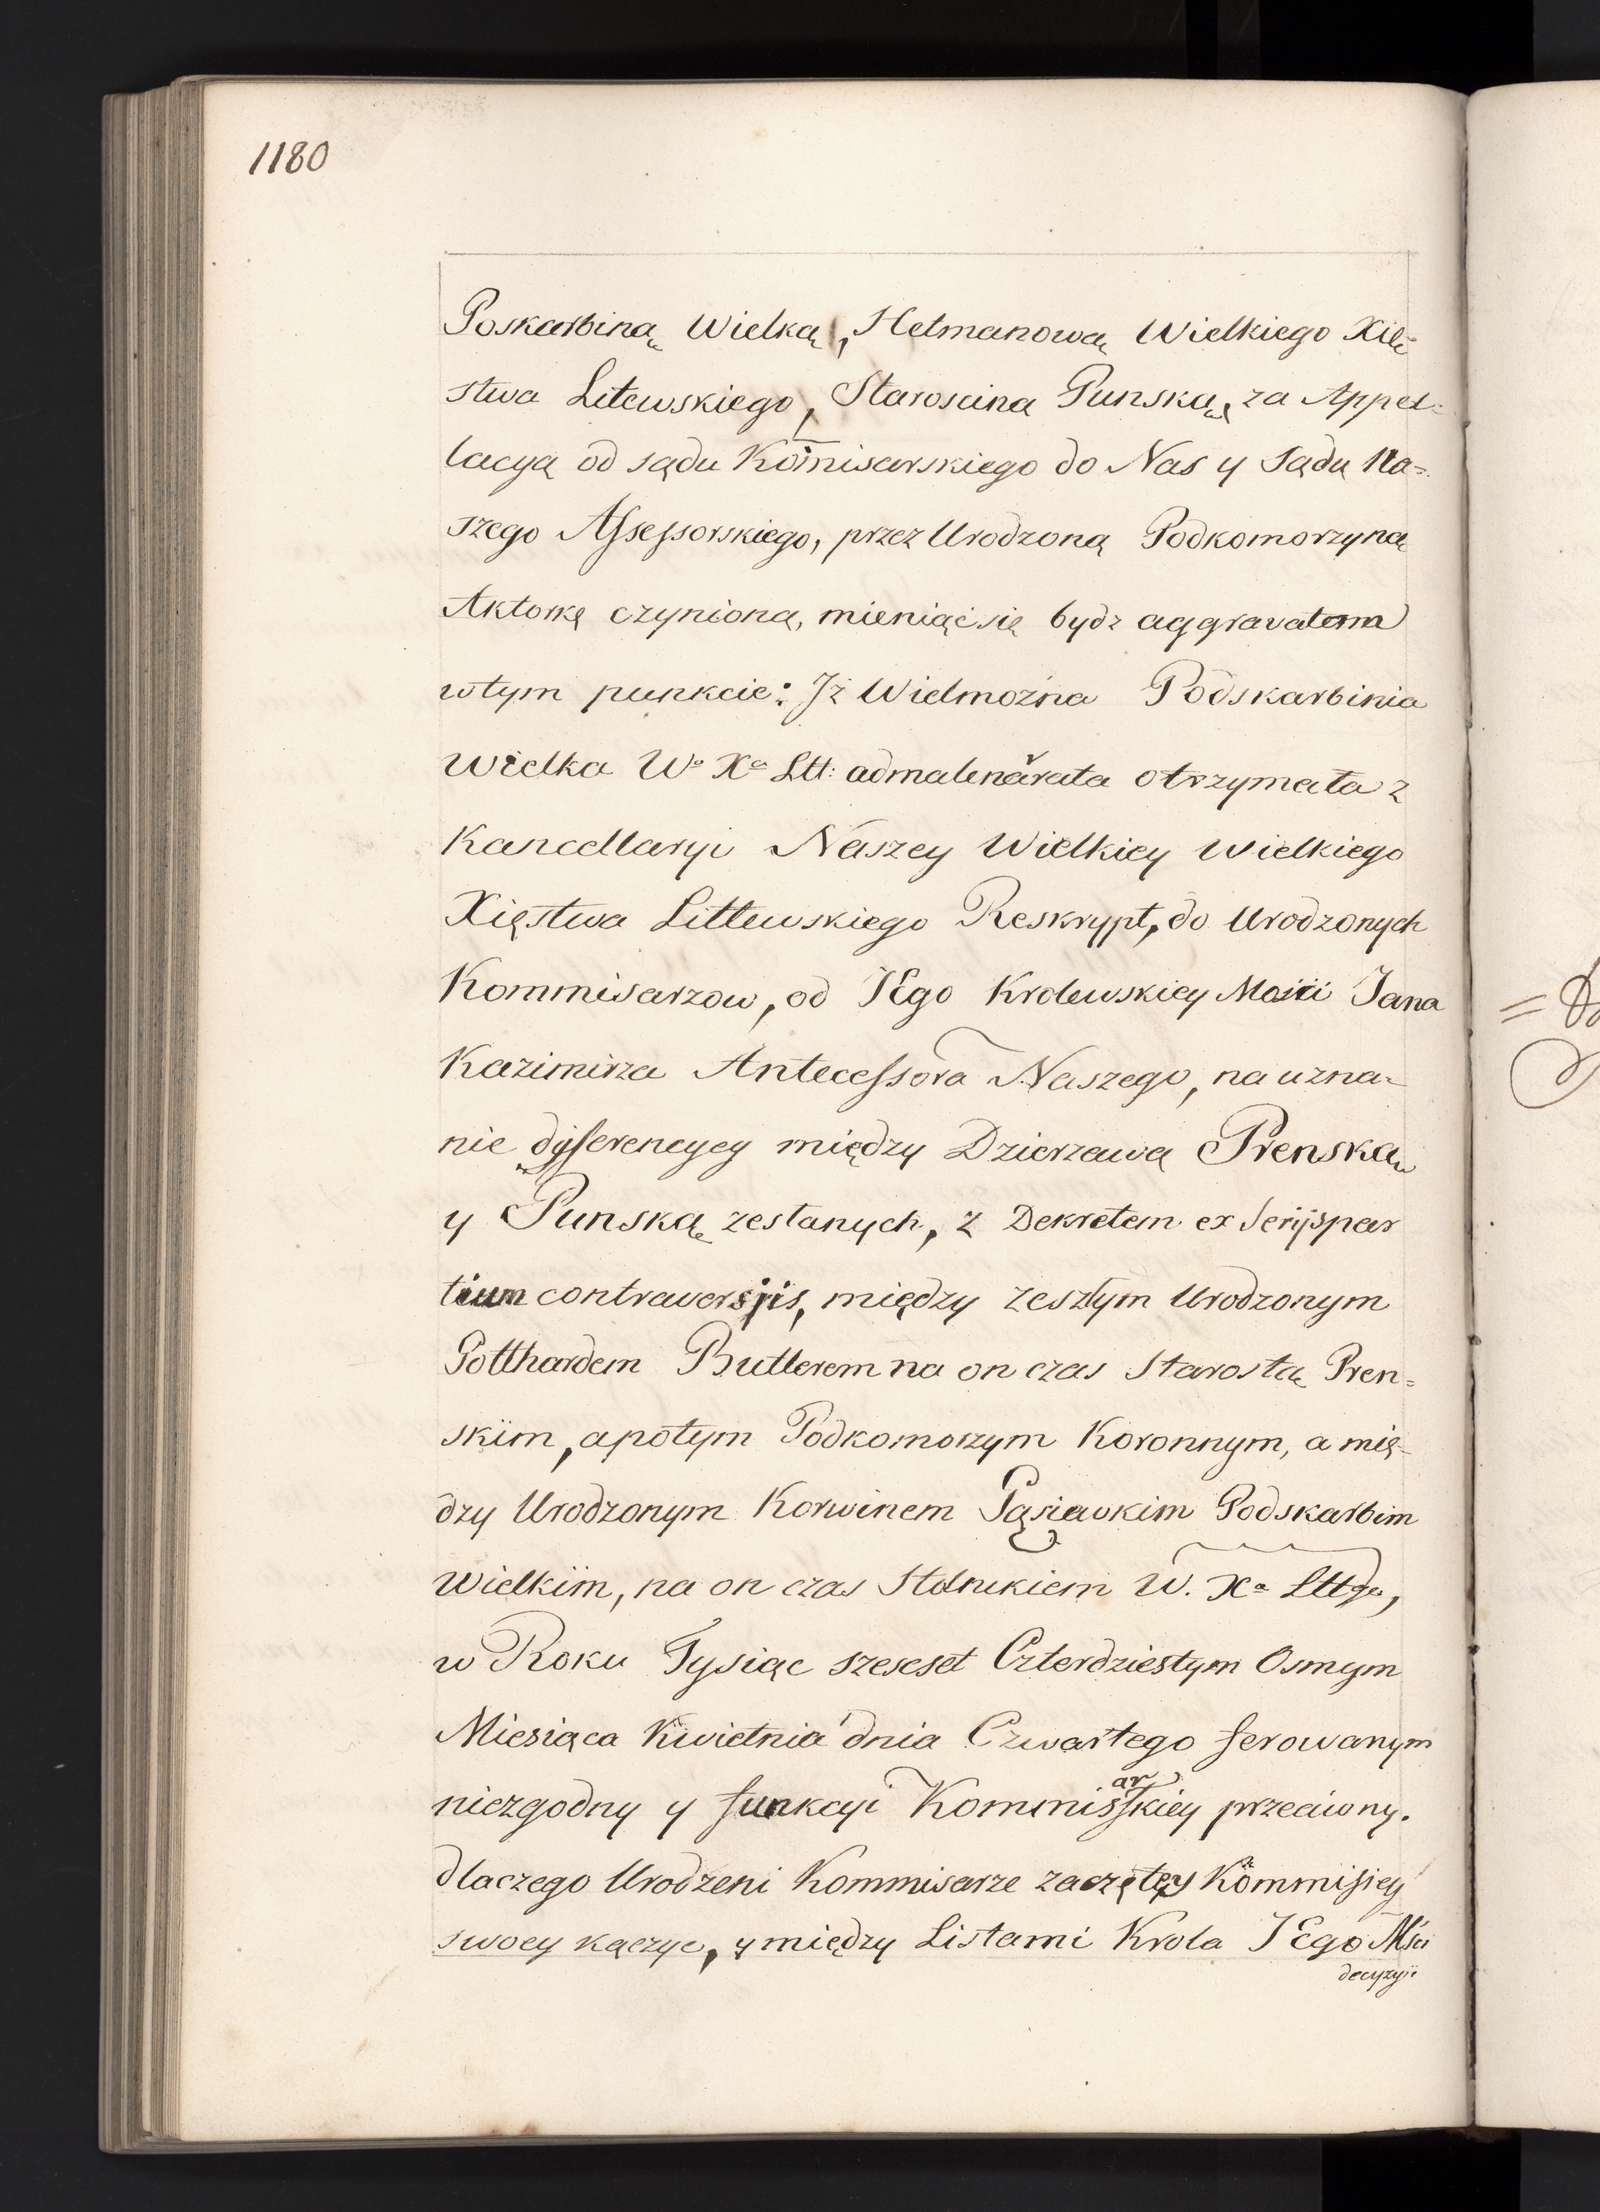 1180
Poskarbiną Wielką, Hetmanową Wielkiego Xię=
stwa Litewskiego, Staroscina Punską, za Appel=
lacyą od sądu Kom̃isarskiego do Nas y Sądu Na=
szego Assessorskiego, przez Urodzoną Podkomorzyną
Aktorkę czynioną, mieniąć się bydz aggravatom
w tym punkcie: Jż Wielmożna Podskarbinia
Wielka Wo Xa Litt: admalenarata otrzymała z
Kancellaryi Naszey Wielkiey Wielkiego
Xięstwa Littewskiego Reskrypt, do Urodzonych
Kommisarzow, od JEgo Krolewskiey Mosci Jana
Kazimirza Antecessora Naszego, na uzna=
nie dyferencyey między Dzierzawą Prenską
y Punską zesłanych, z Dekretem ex Serijs par
tium contraversjis, między zeszłym Urodzonym
Gotthardem Butlerem na on czas Starostą Pren=
skim, a potym Podkomorzym Koronnym, a mię=
dzy Urodzonym Korwinem Gąsiewkim Podskarbim
Wielkim, na on czas Stolnikiem W. Xa Littgo,
w Roku Tysiąc szescset Czterdziestym Osmym
Miesiąca Kwietnia dnia Czwartego ferowanym
niezgodny y funkcyi Kommissarskiey przeciwny.
dlaczego Urodzeni Kommisarze zaczętey Kommisiey
swoey kączyc, y między Listami Krola JEgo Mści
decyzyi